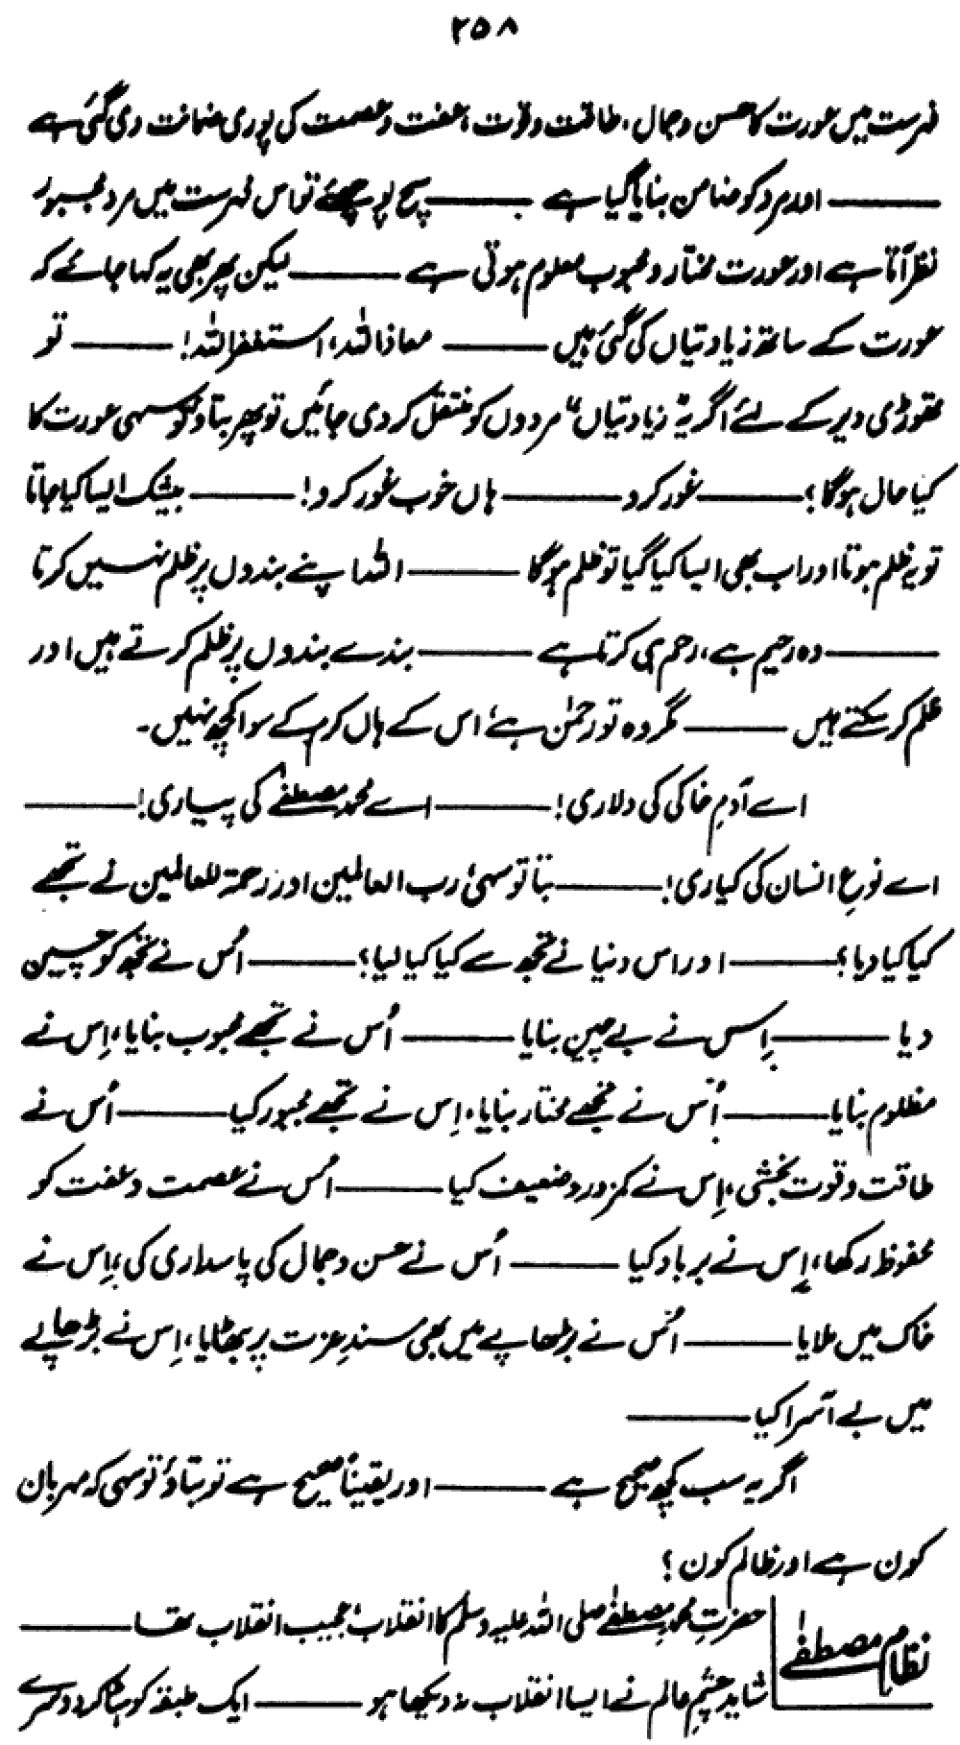 ۲۵۸
فہرست میں عورت کا حسن و جمال، طاقت و قوت، عفت و عصمت کی پوری ضمانت دی گئی ہے
——— اور مرد کو ضامن بنایا گیا ہے ——— سچ پوچھئے تو اس فہرست میں مرد مجبور
نظر آتا ہے اور عورت مختار و محبوب معلوم ہوتی ہے ——— لیکن پھر بھی یہ کہا جائے کہ
عورت کے ساتھ زیادتیاں کی گئی ہیں ——— معاذ اللہ، استغفر اللہ! ——— تو
تھوڑی دیر کے لئے اگر یہ "زیادتیاں" مردوں کو منتقل کر دی جائیں تو پھر بتاؤ تو سہی عورت کا
کیا حال ہوگا؟ ——— غور کرو ——— ہاں خوب غور کرو! ——— بیشک ایسا کیا جاتا
تو یہ ظلم ہوتا اور اب بھی ایسا کیا گیا تو ظلم ہوگا ——— اللہ اپنے بندوں پر ظلم نہیں کرتا
——— وہ رحیم ہے، رحم ہی کرتا ہے ——— بندے بندوں پر ظلم کرتے ہیں اور
ظلم کر سکتے ہیں ——— مگر وہ تو رحمٰن ہے، اس کے ہاں کرم کے سوا کچھ نہیں۔
اے آدمِ خاکی کی دلاری! ——— اے محمد مصطفےٰ کی پیاری! ———
اے نوعِ انسان کی کیاری! ——— بتا تو سہی رب العالمین اور رحمۃ للعالمین نے تجھے
کیا کیا دیا؟ ——— اور اس دنیا نے تجھ سے کیا کیا لیا؟ ——— اُس نے تجھ کو چین
دیا ——— اِس نے بے چین بنایا ——— اُس نے تجھے محبوب بنایا، اِس نے
مظلوم بنایا ——— اُس نے تجھے مختار بنایا، اِس نے تجھے مجبور کیا ——— اُس نے
طاقت و قوت بخشی، اِس نے کمزور و ضعیف کیا ——— اُس نے عصمت و عفت کو
محفوظ رکھا، اِس نے برباد کیا ——— اُس نے حسن و جمال کی پاسداری کی، اِس نے
خاک میں ملایا ——— اُس نے بڑھاپے میں بھی مسندِ عزت پر بٹھایا، اِس نے بڑھاپے
میں بے آسرا کیا ———
اگر یہ سب کچھ صحیح ہے ——— اور یقیناً صحیح ہے تو بتاؤ تو سہی کہ مہربان
کون ہے اور ظالم کون؟
نظامِ مصطفےٰ
حضرتِ محمدِ مصطفےٰ صلی اللہ علیہ وسلم کا انقلاب، عجیب انقلاب تھا ———
شاید چشمِ عالم نے ایسا انقلاب نہ دیکھا ہو ——— ایک طبقہ کو ہٹا کر دوسرے